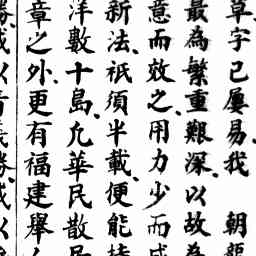 草字已屢易、我 朝龍
最為繁重艱深、以故為
意而效之、用力少而成
新法、祇須半載、便能持
洋數十島、凢華民散居
章之外、更有福建舉人